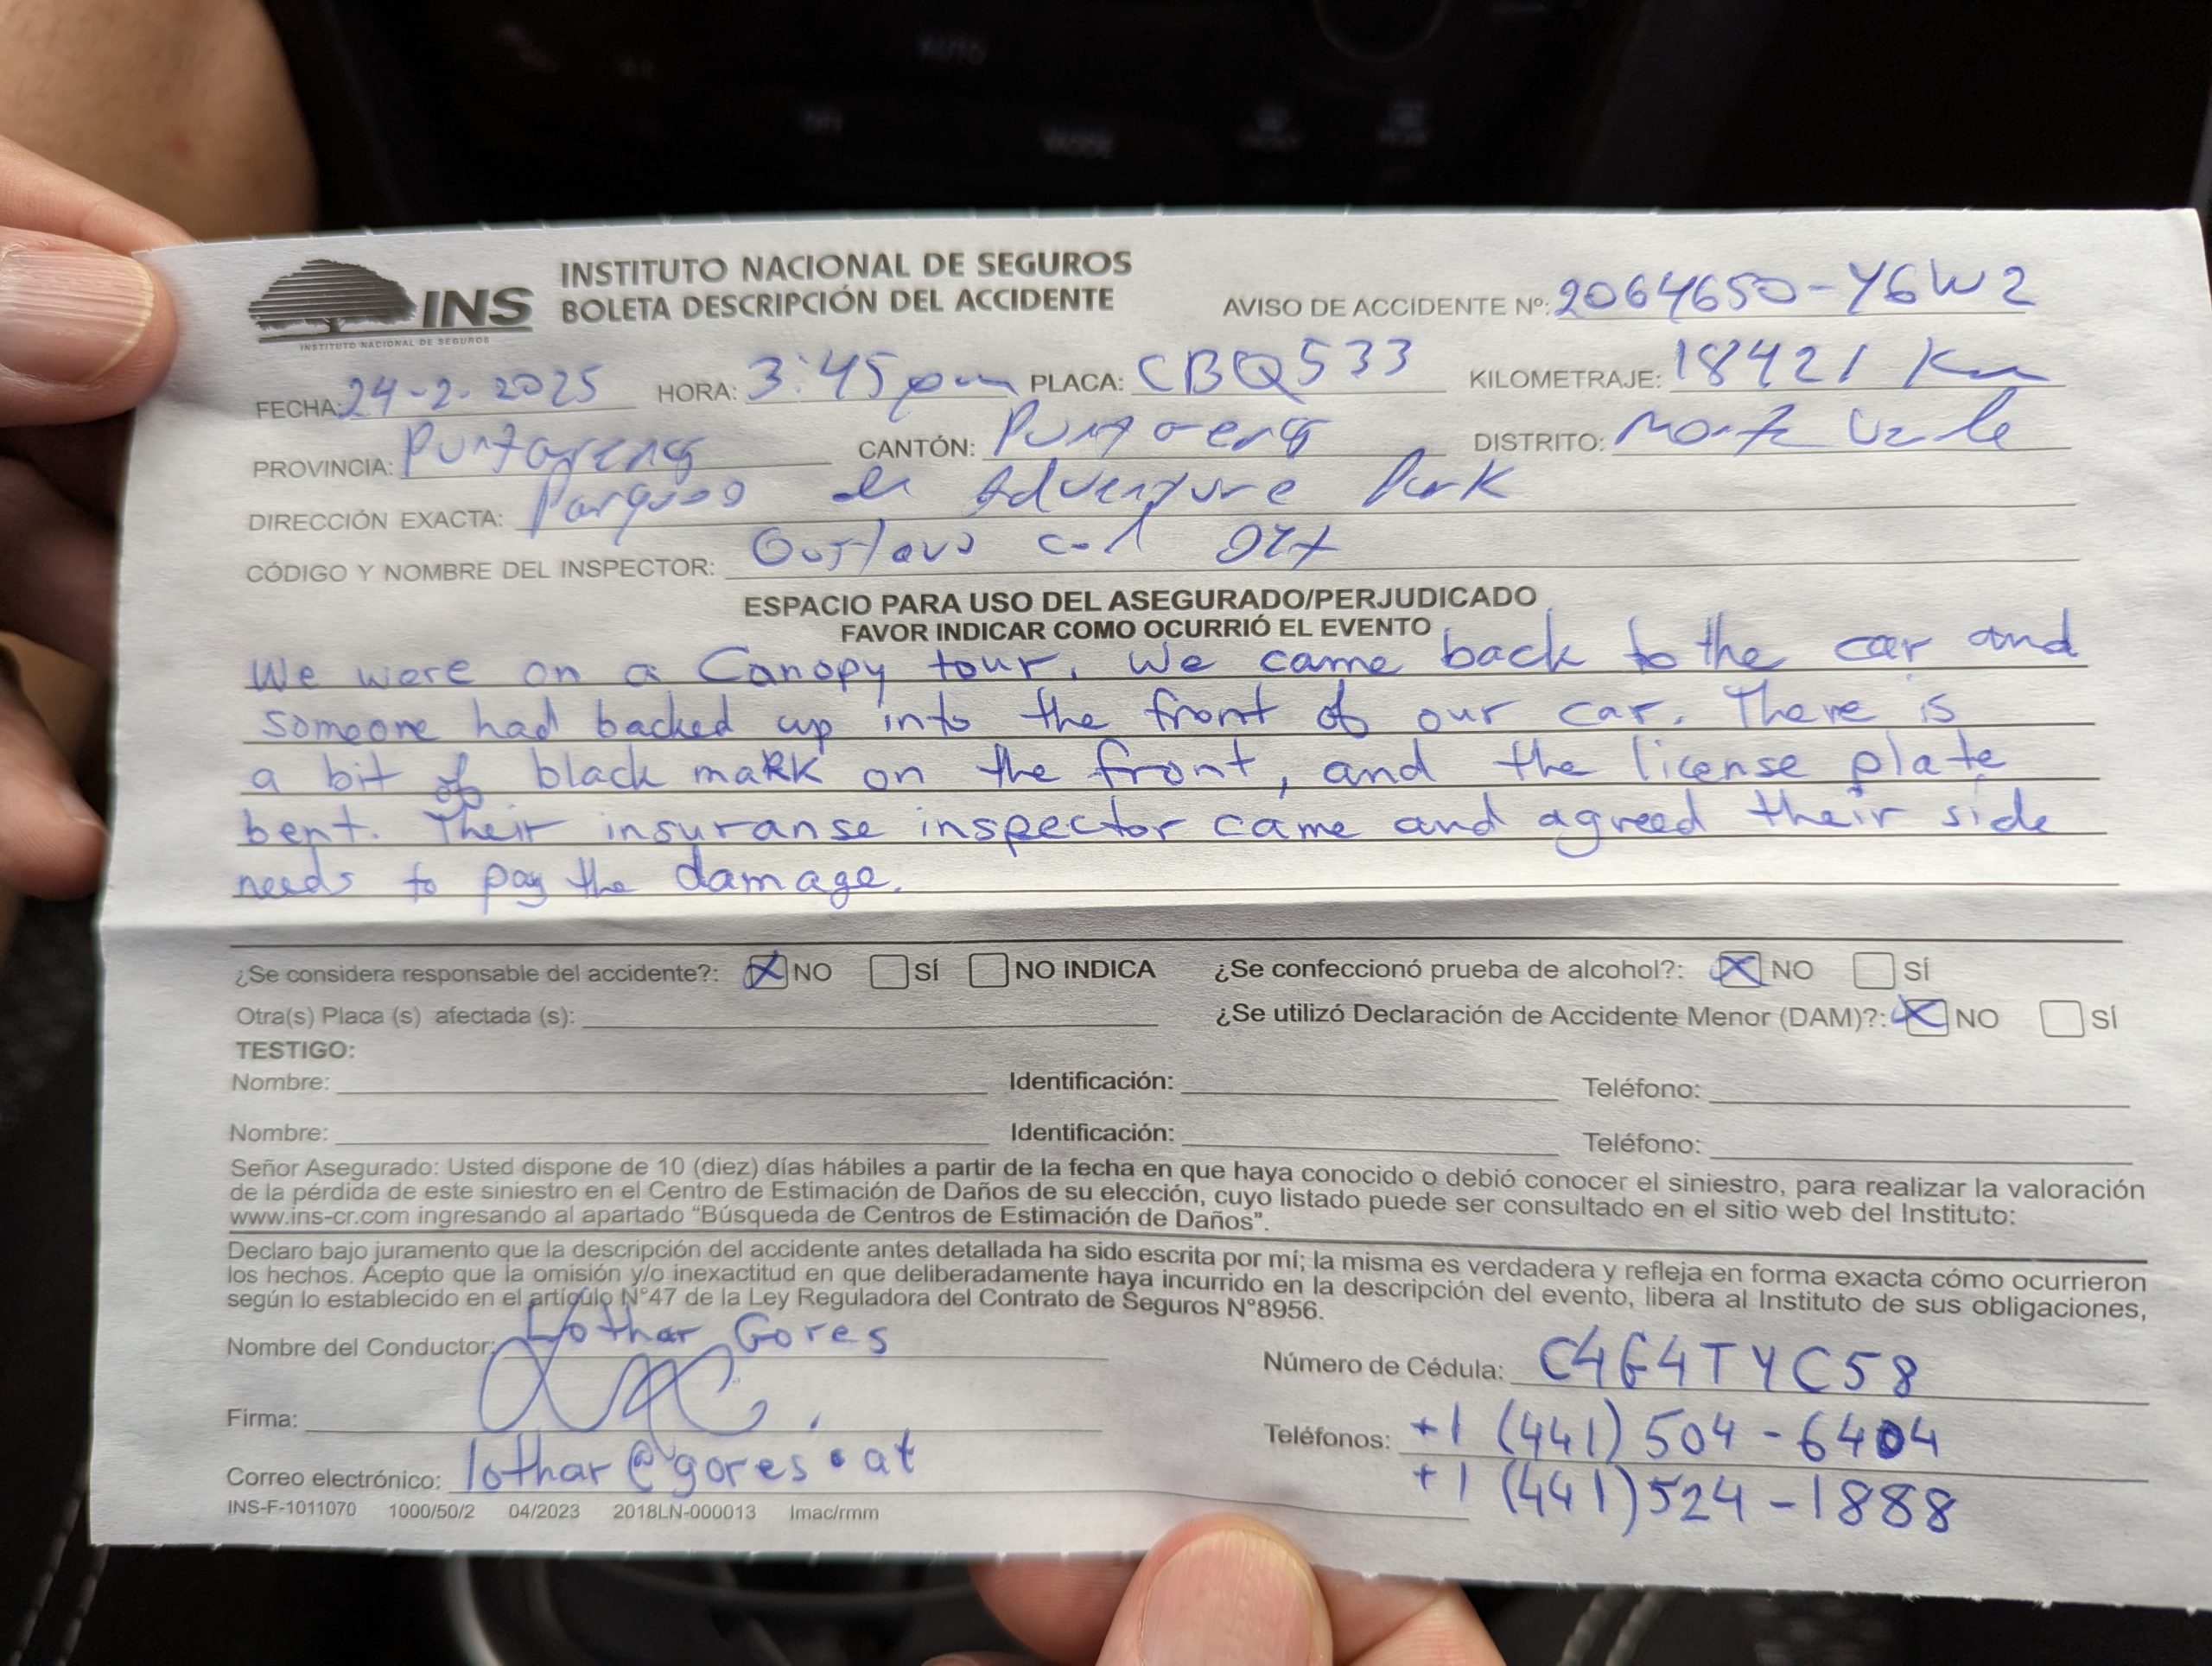 INS
INSTITUTO NACIONAL DE SEGUROS
INSTITUTO NACIONAL DE SEGUROS
BOLETA DESCRIPCIÓN DEL ACCIDENTE
AVISO DE ACCIDENTE Nº: 2064650-Y6W2
FECHA: 24-2-2025 HORA: 3:45pm PLACA: CBQ533 KILOMETRAJE: 18421 Km
PROVINCIA: Puntarenas CANTÓN: Puntarenas DISTRITO: Monte Verde
DIRECCIÓN EXACTA: Parqueo de Adventure Park
CÓDIGO Y NOMBRE DEL INSPECTOR: Gustavo
ESPACIO PARA USO DEL ASEGURADO/PERJUDICADO
FAVOR INDICAR COMO OCURRIÓ EL EVENTO
We were on a Canopy tour. We came back to the car and
someone had backed up into the front of our car. There is
a bit of black maRK on the front, and the license plate
bent. Their insuranse inspector came and agreed their side
needs to pay the damage.
¿Se considera responsable del accidente?: X NO SÍ NO INDICA ¿Se confeccionó prueba de alcohol?: X NO SÍ
Otra(s) Placa (s) afectada (s): ¿Se utilizó Declaración de Accidente Menor (DAM)?: X NO SÍ
TESTIGO:
Nombre: Identificación: Teléfono:
Nombre: Identificación: Teléfono:
Señor Asegurado: Usted dispone de 10 (diez) días hábiles a partir de la fecha en que haya conocido o debió conocer el siniestro, para realizar la valoración
de la pérdida de este siniestro en el Centro de Estimación de Daños de su elección, cuyo listado puede ser consultado en el sitio web del Instituto:
www.ins-cr.com ingresando al apartado “Búsqueda de Centros de Estimación de Daños”.
Declaro bajo juramento que la descripción del accidente antes detallada ha sido escrita por mí; la misma es verdadera y refleja en forma exacta cómo ocurrieron
los hechos. Acepto que la omisión y/o inexactitud en que deliberadamente haya incurrido en la descripción del evento, libera al Instituto de sus obligaciones,
según lo establecido en el artículo N°47 de la Ley Reguladora del Contrato de Seguros N°8956.
Nombre del Conductor: Lothar Gores
Número de Cédula: C4G4TYC58
Firma:
Teléfonos: +1 (441) 504-6404
+1 (441) 524-1888
Correo electrónico: lothar@gores.at
INS-F-1011070 1000/50/2 04/2023 2018LN-000013 lmac/rmm